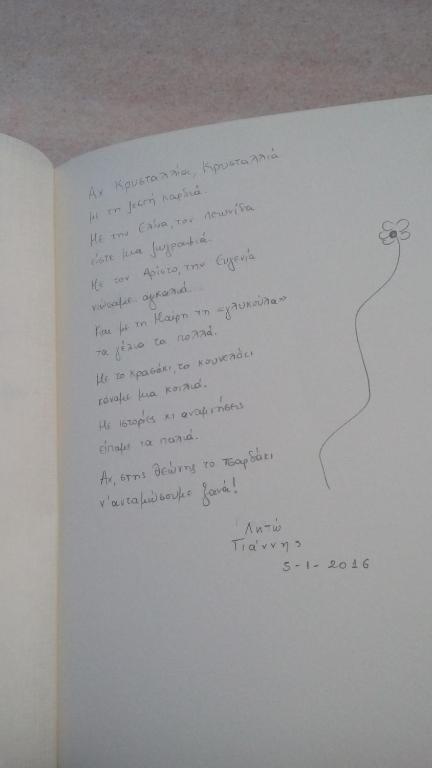 Αχ Κρυσταλλία, Κρυσταλλιά
με τη ζεστή καρδιά.
Με την Ελίνα, τον Λεωνίδα
είστε μια ζωγραφιά.
Με τον Αρίστο, την Ευγενία
νιώσαμε αγκαλιά...
Και με τη Μαίρη τη «γλυκούλα»
τα γέλια τα πολλά.
Με το κρασάκι, το κουνελάκι
κάναμε μια κοιλιά.
Με ιστορίες κι αναμνήσεις
είπαμε τα παλιά.
Αχ, στης Θεώνης το Τσαρδάκι
ν'ανταμώσουμε ξανά!
Λητώ
Γιάννης
5-1-2016